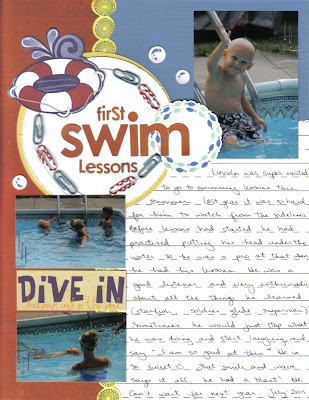 first
swim
Lessons
Lincoln was super excited
to go to swimming lessons this
summer. Last year it was so hard
for him to watch from the sidelines.
Before lessons had started he had
practiced putting his head under the
water so he was a pro at that when
he had his lessons. He was a
good listener and very enthusiastic
about all the things he learned
(starfish, soldier glide, superman)
Sometimes he would just stop what
he was doing and start laughing and
say "I am so good at this." He is
so sweet! That smile and wave
says it all. he had a blast! We
Can't wait for next year. July 2011
DIVE IN